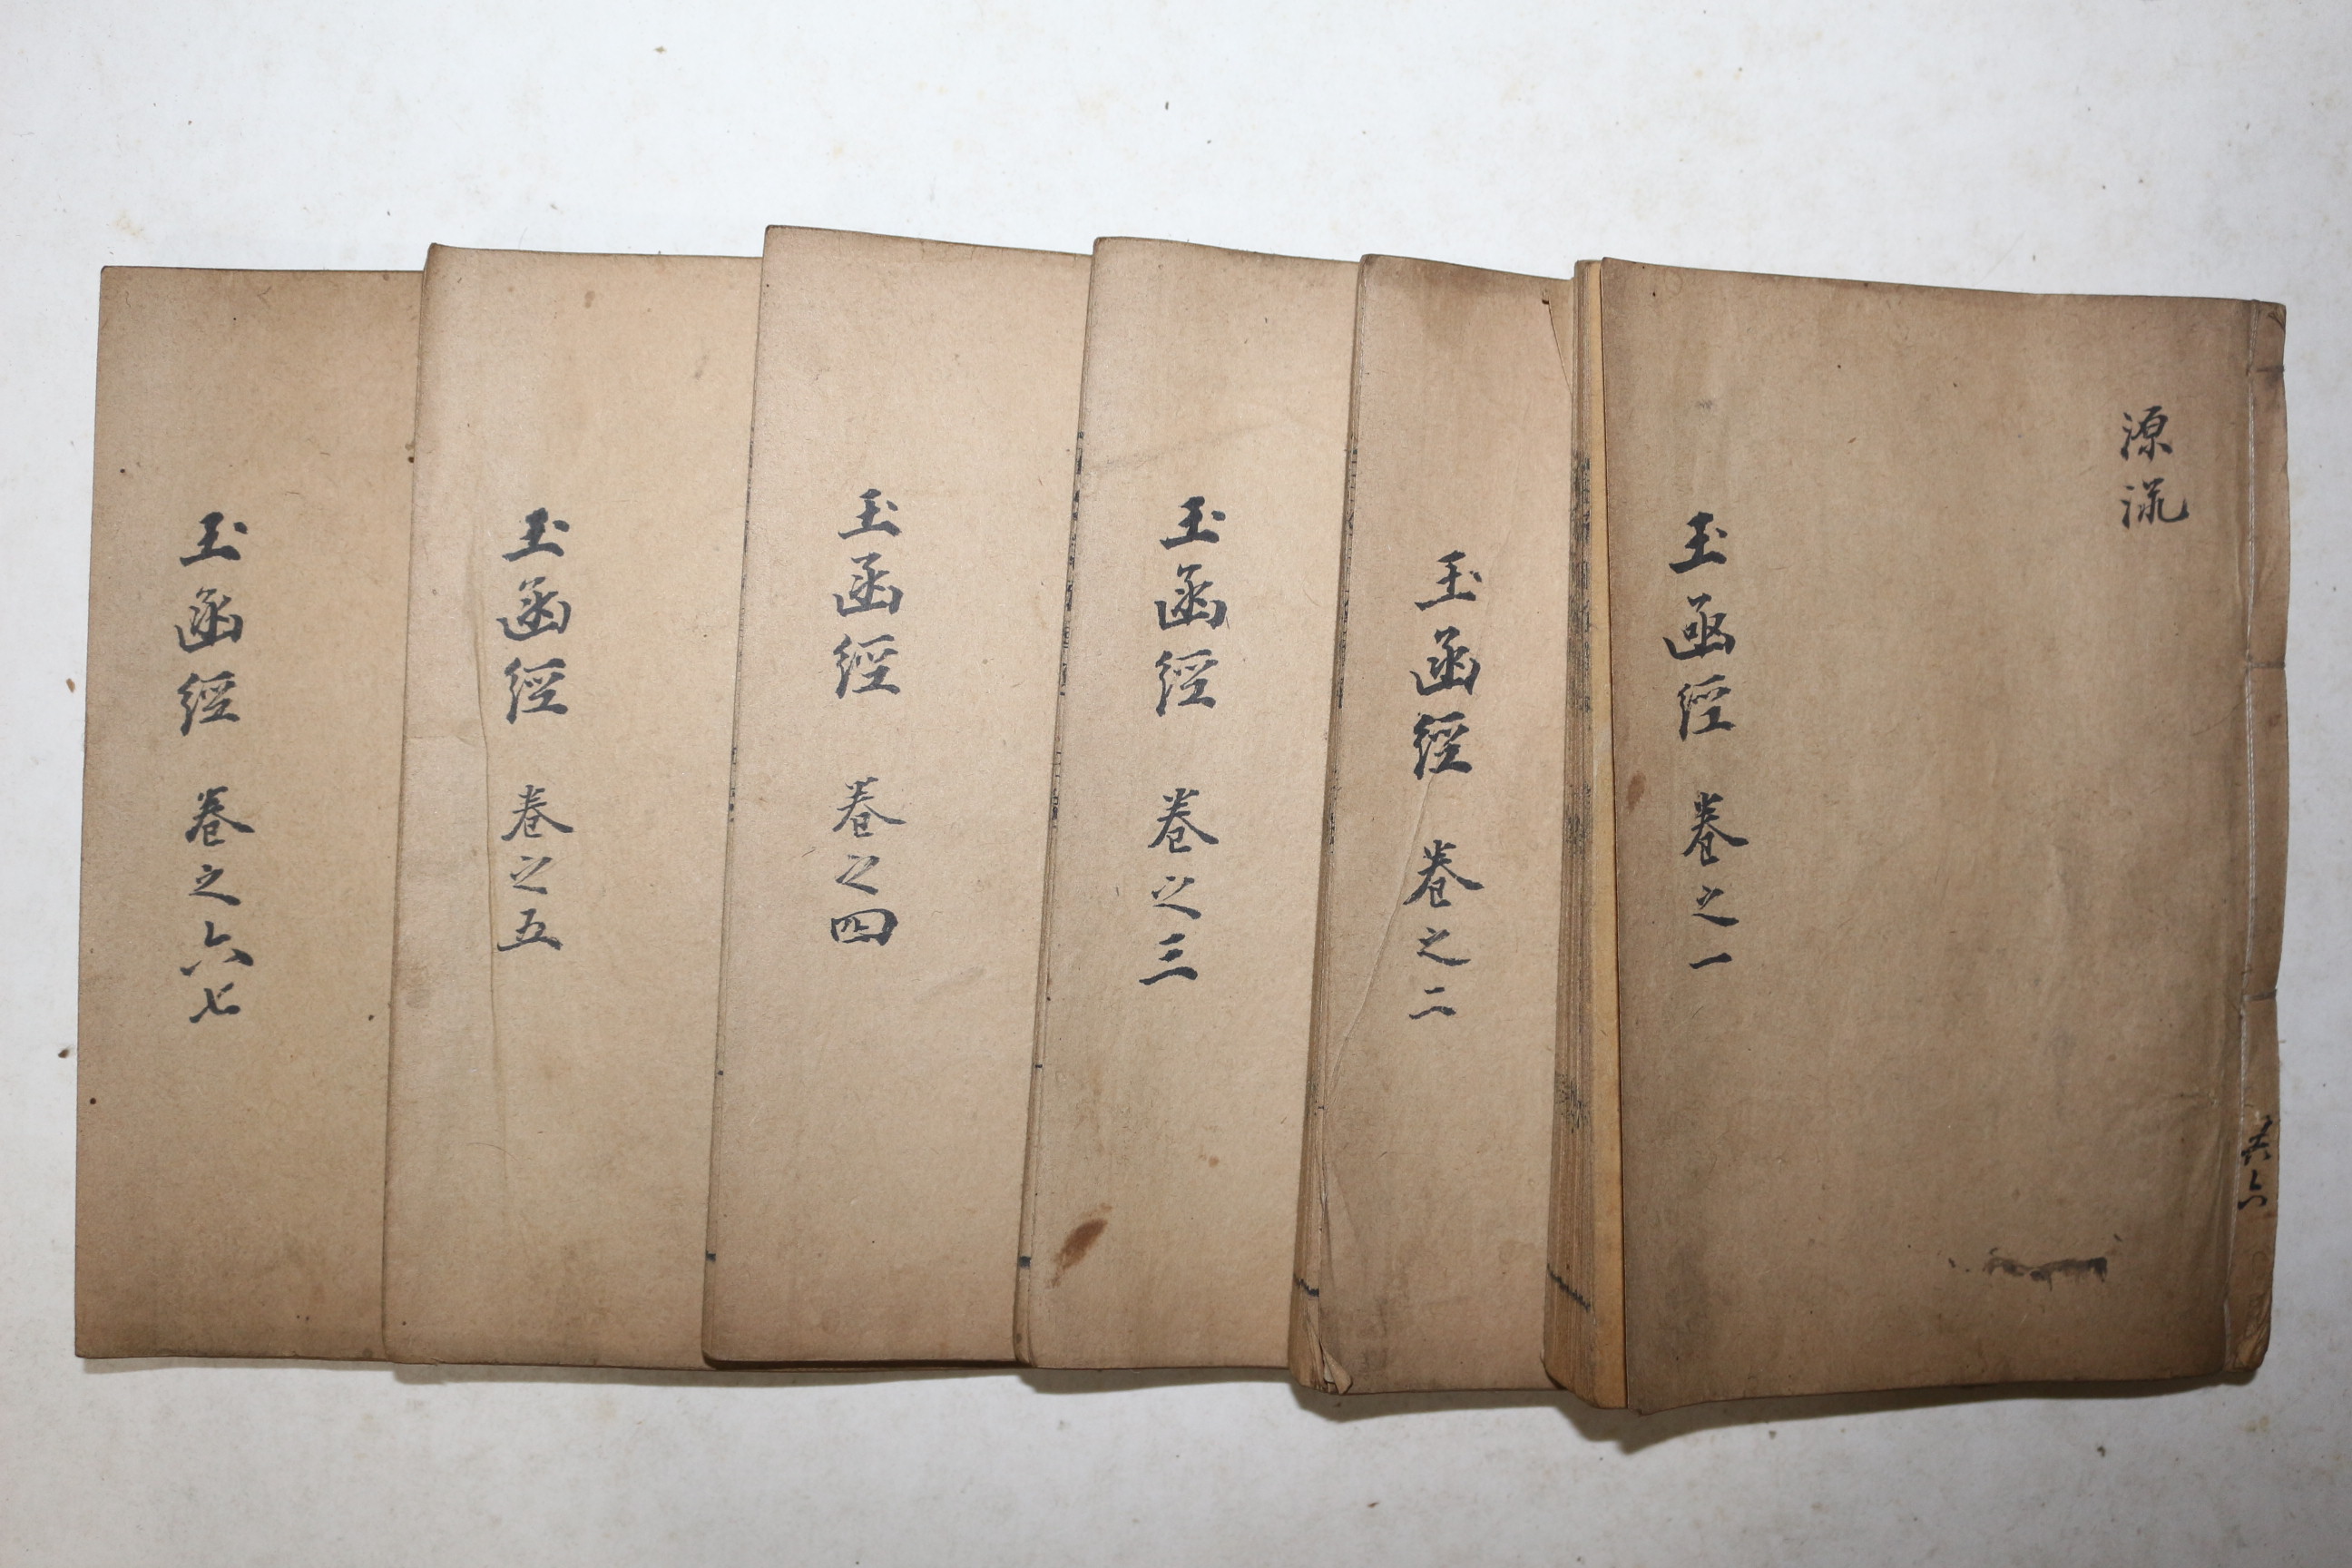 源流
玉函經 卷之一
共六
玉函經 卷之二
玉函經 卷之三
玉函經 卷之四
玉函經 卷之五
玉函經 卷之六七